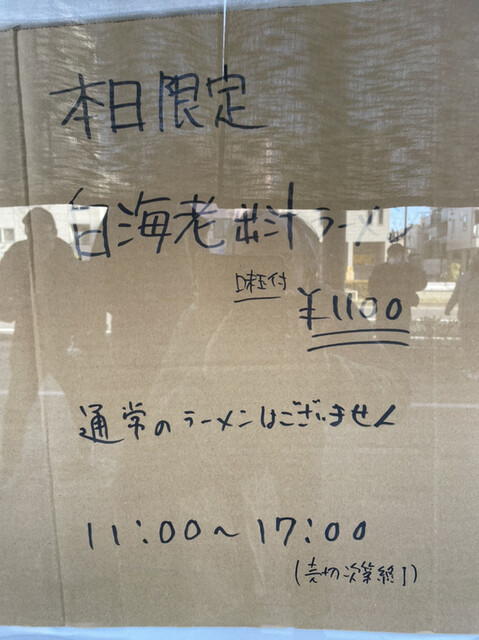 本日限定
白海老出汁ラーメン
味玉付
¥1100
通常のラーメンはございません
11:00~17:00
(売切次第終了)